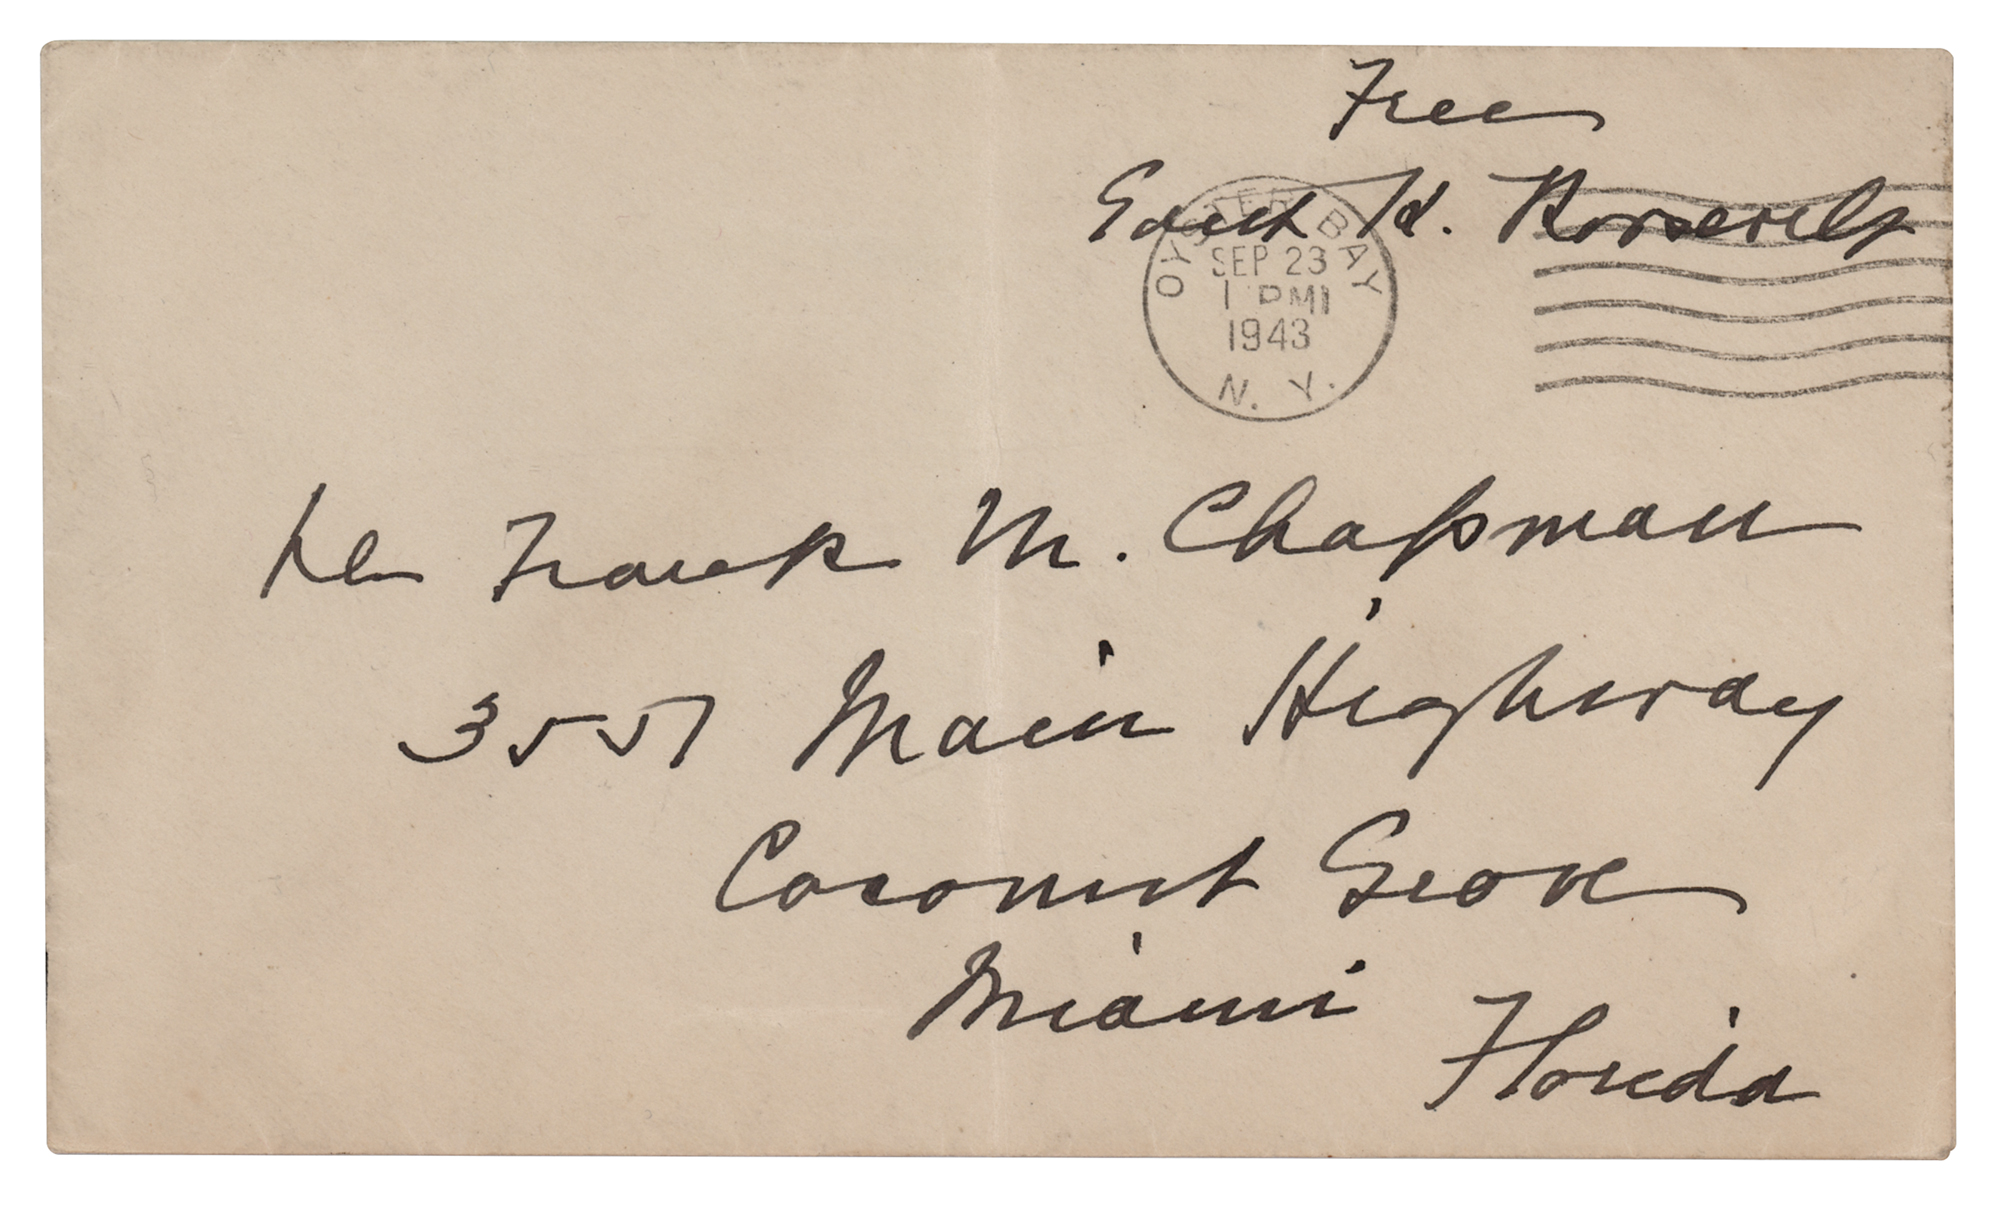 Free
Edith K. Roosevelt
OYSTER BAY
SEP 23
1 PM
1943
N. Y.
Dr Frank M. Chapman
3551 Main Highway
Coconut Grove
Miami
Florida